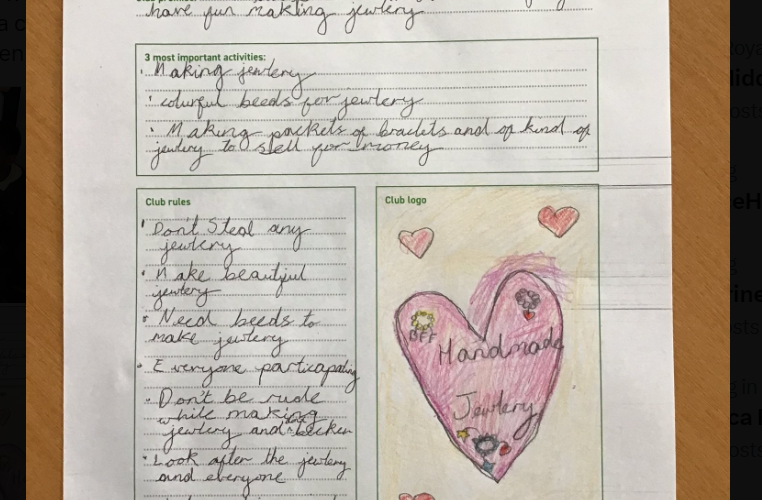 have fun making jewlery
3 most important activities:
· Making jewlery
· colurful beeds for jewlery
· Making packets of braclets and of kind of
jewlery to sell for money
Club rules
· Don't Steal any
jewlery
· Make beautiful
jewlery
· Need beeds to
make jewlery
· Everyone particapating
· Don't be rude
while making
jewlery and
· Look after the jewlery
and everyone
Club logo
BFF
Handmade
Jewlery